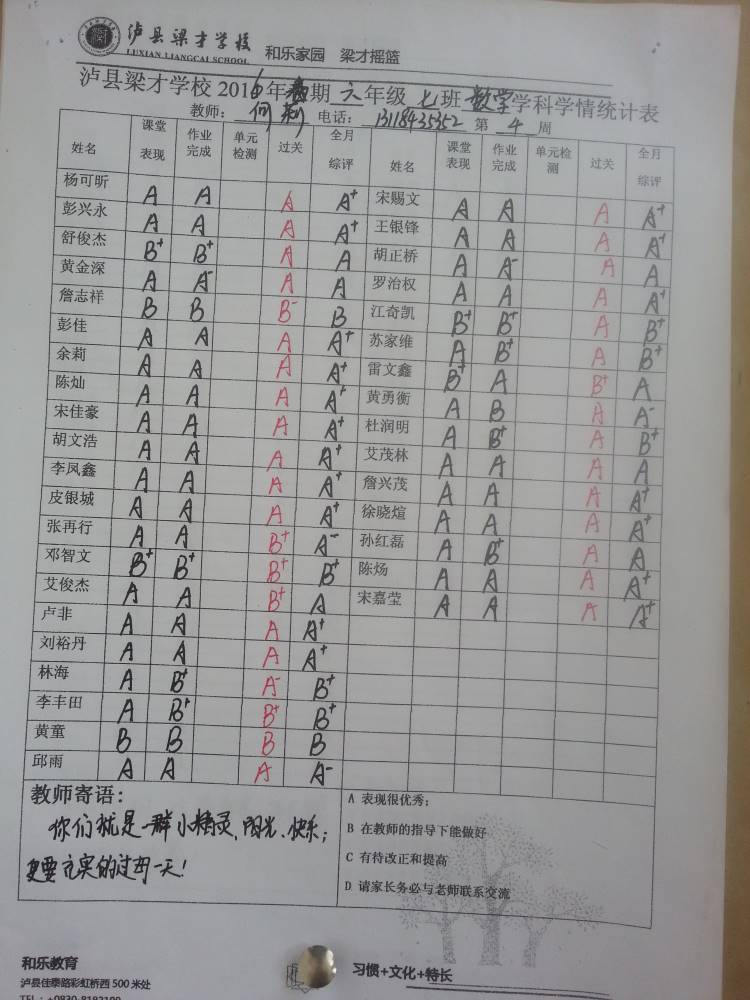 泸县梁才学校
LUXIAN LIANGCAI SCHOOL
和乐家园 梁才摇篮
泸县梁才学校2016年期六年级七班数学学科学情统计表
教师: 何莉 电话: 13118435352 第 4 周
姓名 课堂表现 作业完成 单元检测 过关 全月综评 姓名 课堂表现 作业完成 单元检测 过关 全月综评
杨可昕 A A A A+ 宋赐文 A A A A+
彭兴永 A A A A+ 王银锋 A A A A+
舒俊杰 B+ B+ A A 胡正桥 A A- A A
黄金深 A A- A A 罗治权 A A A A+
詹志祥 B B B- B 江奇凯 B+ B+ A B+
彭佳 A A A A+ 苏家维 A B+ A B+
余莉 A A A A+ 雷文鑫 B+ A B+ A
陈灿 A A A A+ 黄勇衡 A B A A-
宋佳豪 A A A A+ 杜润明 A B+ A B+
胡文浩 A A A A+ 艾茂林 A A A A
李凤鑫 A A A A+ 詹兴茂 A A A A+
皮银城 A A A A+ 徐晓煊 A A A A+
张再行 A A B+ A- 孙红磊 A B+ A A
邓智文 B+ B+ B+ B+ 陈炀 A A A A+
艾俊杰 A A B+ A 宋嘉莹 A A A A+
卢非 A A A A+
刘裕丹 A A A A+
林海 A B+ A- B+
李丰田 A B+ B+ B+
黄童 B B B B
邱雨 A A A A-
教师寄语:
你们就是一群小精灵,阳光、快乐;
更要充实的过每一天!
A 表现很优秀;
B 在教师的指导下能做好
C 有待改正和提高
D 请家长务必与老师联系交流
和乐教育
泸县佳泰路彩虹桥西500米处
TEL:+0830-8182199
习惯+文化+特长